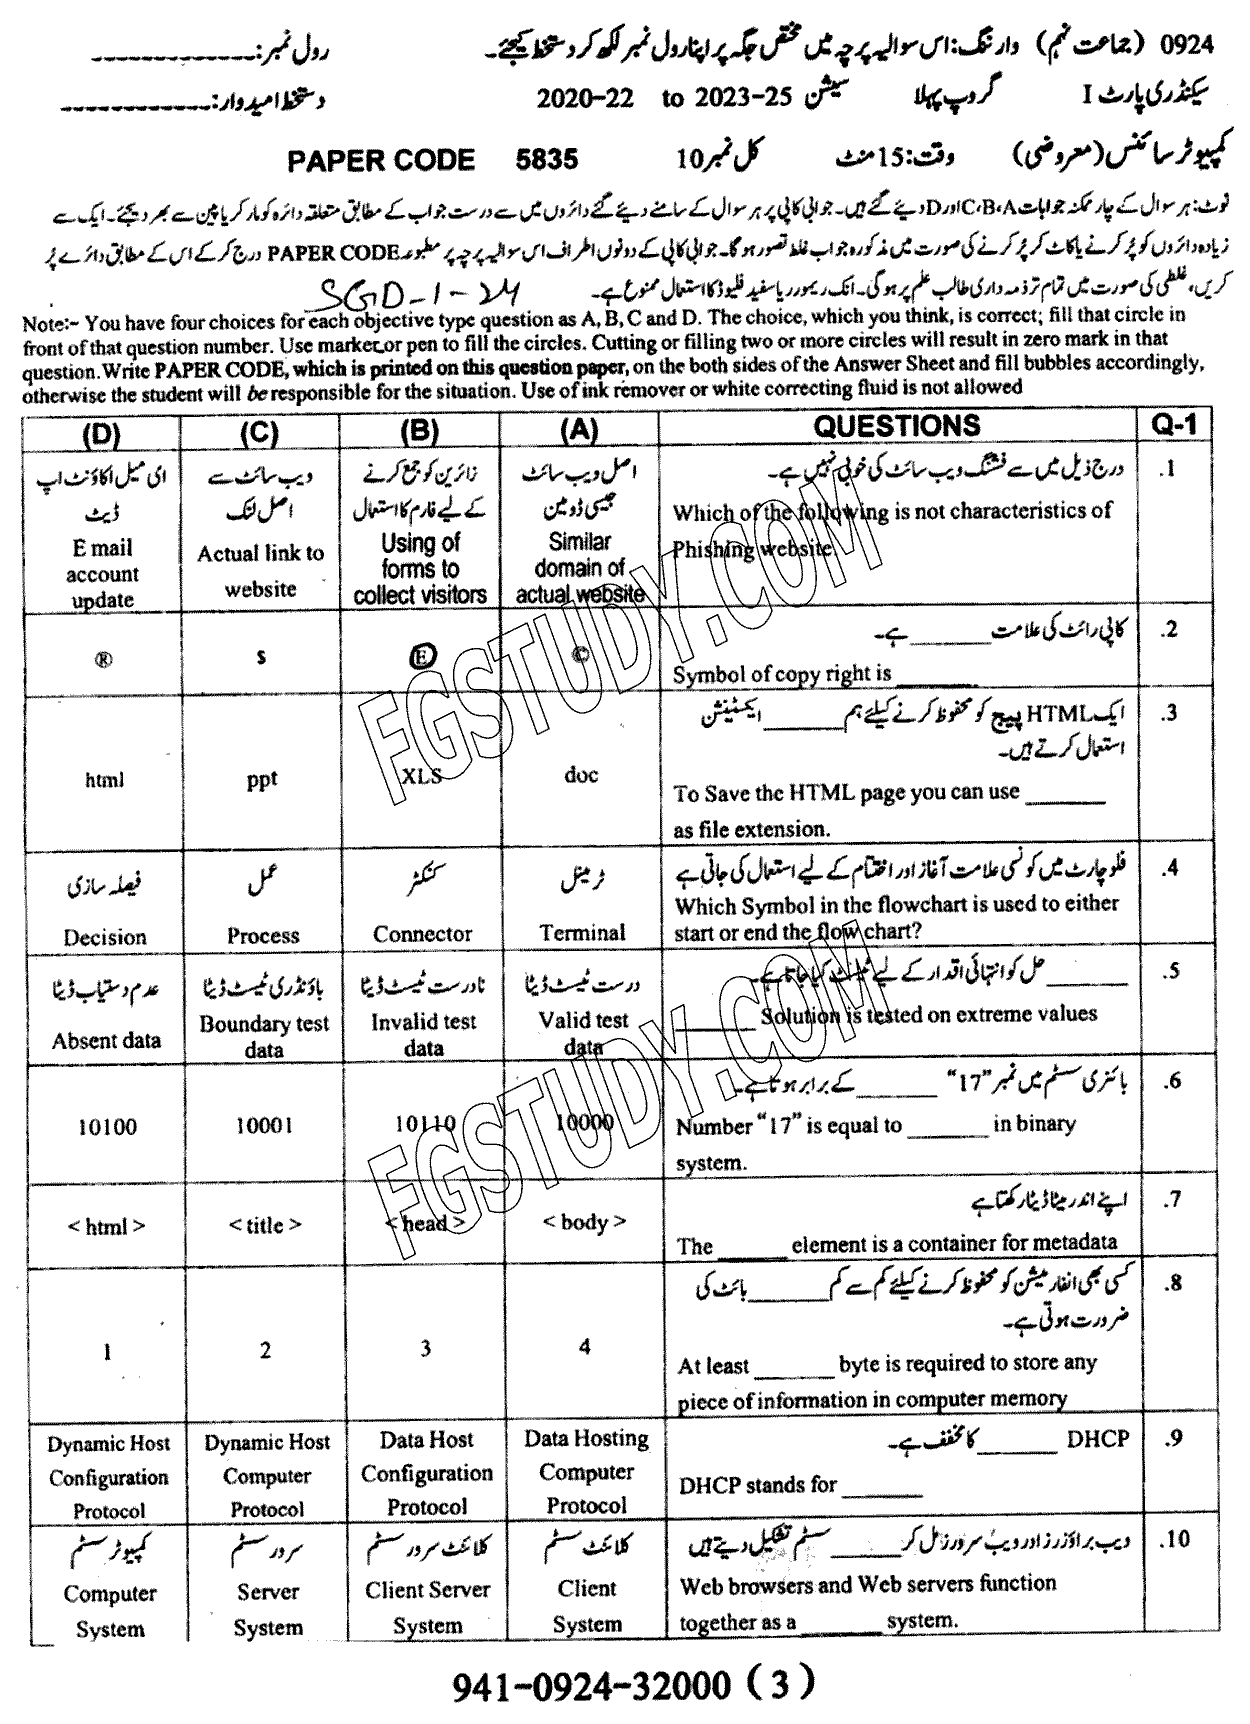 0924 (جماعت نہم) وارننگ: اس سوالیہ پرچہ میں مختص جگہ پر اپنا رول نمبر لکھ کر دستخط کیجئے۔ رول نمبر: -------------
سیکنڈری پارٹ I گروپ پہلا سیشن 2020-22 to 2023-25 دستخط امیدوار: ------------
کمپیوٹر سائنس (معروضی) وقت: 15 منٹ کل نمبر 10 PAPER CODE 5835
نوٹ: ہر سوال کے چار ممکنہ جوابات C، B، A اور D دیئے گئے ہیں۔ جوابی کاپی پر ہر سوال کے سامنے دیئے گئے دائروں میں سے درست جواب کے مطابق متعلقہ دائرہ کو مارکر یا پین سے بھر دیجئے۔ ایک سے
زیادہ دائروں کو پُر کرنے یا کاٹ کر پُر کرنے کی صورت میں مذکورہ جواب غلط تصور ہوگا۔ جوابی کاپی کے دونوں اطراف اس سوالیہ پرچہ پر مطبوعہ PAPER CODE درج کر کے اس کے مطابق دائرے پُر
کریں، غلطی کی صورت میں تمام تر ذمہ داری طالب علم پر ہوگی۔ انک ریموور یا سفید فلیوڈ کا استعمال ممنوع ہے۔ SGD-1-24
Note:- You have four choices for each objective type question as A, B, C and D. The choice, which you think, is correct; fill that circle in
front of that question number. Use marker or pen to fill the circles. Cutting or filling two or more circles will result in zero mark in that
question. Write PAPER CODE, which is printed on this question paper, on the both sides of the Answer Sheet and fill bubbles accordingly,
otherwise the student will be responsible for the situation. Use of ink remover or white correcting fluid is not allowed
(D) (C) (B) (A) QUESTIONS Q-1
.1 درج ذیل میں سے فشنگ ویب سائٹ کی خوبی نہیں ہے۔
Which of the following is not characteristics of
Phishing website.
اصل ویب سائٹ
جیسی ڈومین
Similar
domain of
actual website
زائرین کو جمع کرنے
کے لیے فارم کا استعمال
Using of
forms to
collect visitors
ویب سائٹ سے
اصل لنک
Actual link to
website
ای میل اکاؤنٹ اپ
ڈیٹ
E mail
account
update
.2 کاپی رائٹ کی علامت ______ ہے۔
Symbol of copy right is ______
© Ⓔ $ ®
.3 ایک HTML پیج کو محفوظ کرنے کیلئے ہم ______ ایکسٹینشن
استعمال کرتے ہیں۔
To Save the HTML page you can use ______
as file extension.
doc
XLS
ppt
html
.4 فلو چارٹ میں کونسی علامت آغاز اور اختتام کے لیے استعمال کی جاتی ہے
Which Symbol in the flowchart is used to either
start or end the flow chart?
ٹرمینل
Terminal
کنکٹر
Connector
عمل
Process
فیصلہ سازی
Decision
.5 ______ حل کو انتہائی اقدار کے لیے ٹیسٹ کیا جاتا ہے۔
______ Solution is tested on extreme values
درست ٹیسٹ ڈیٹا
Valid test
data
نادرست ٹیسٹ ڈیٹا
Invalid test
data
باؤنڈری ٹیسٹ ڈیٹا
Boundary test
data
عدم دستیاب ڈیٹا
Absent data
.6 بائنری سسٹم میں نمبر "17" ______ کے برابر ہوتا ہے۔
Number "17" is equal to ______ in binary
system.
10000
10110
10001
10100
.7 اپنے اندر میٹا ڈیٹا رکھتا ہے
The ______ element is a container for metadata
< body >
< head >
< title >
< html >
.8 کسی بھی انفارمیشن کو محفوظ کرنے کیلئے کم سے کم ______ بائٹ کی
ضرورت ہوتی ہے۔
At least ______ byte is required to store any
piece of information in computer memory
4
3
2
1
.9 DHCP ______ کا مخفف ہے۔
DHCP stands for ______
Data Hosting
Computer
Protocol
Data Host
Configuration
Protocol
Dynamic Host
Computer
Protocol
Dynamic Host
Configuration
Protocol
.10 ویب براؤزرز اور ویب سرورز مل کر ______ سسٹم تشکیل دیتے ہیں
Web browsers and Web servers function
together as a ______ system.
کلائنٹ سسٹم
Client
System
کلائنٹ سرور سسٹم
Client Server
System
سرور سسٹم
Server
System
کمپیوٹر سسٹم
Computer
System
941-0924-32000 (3)
FGSTUDY.COM
FGSTUDY.COM